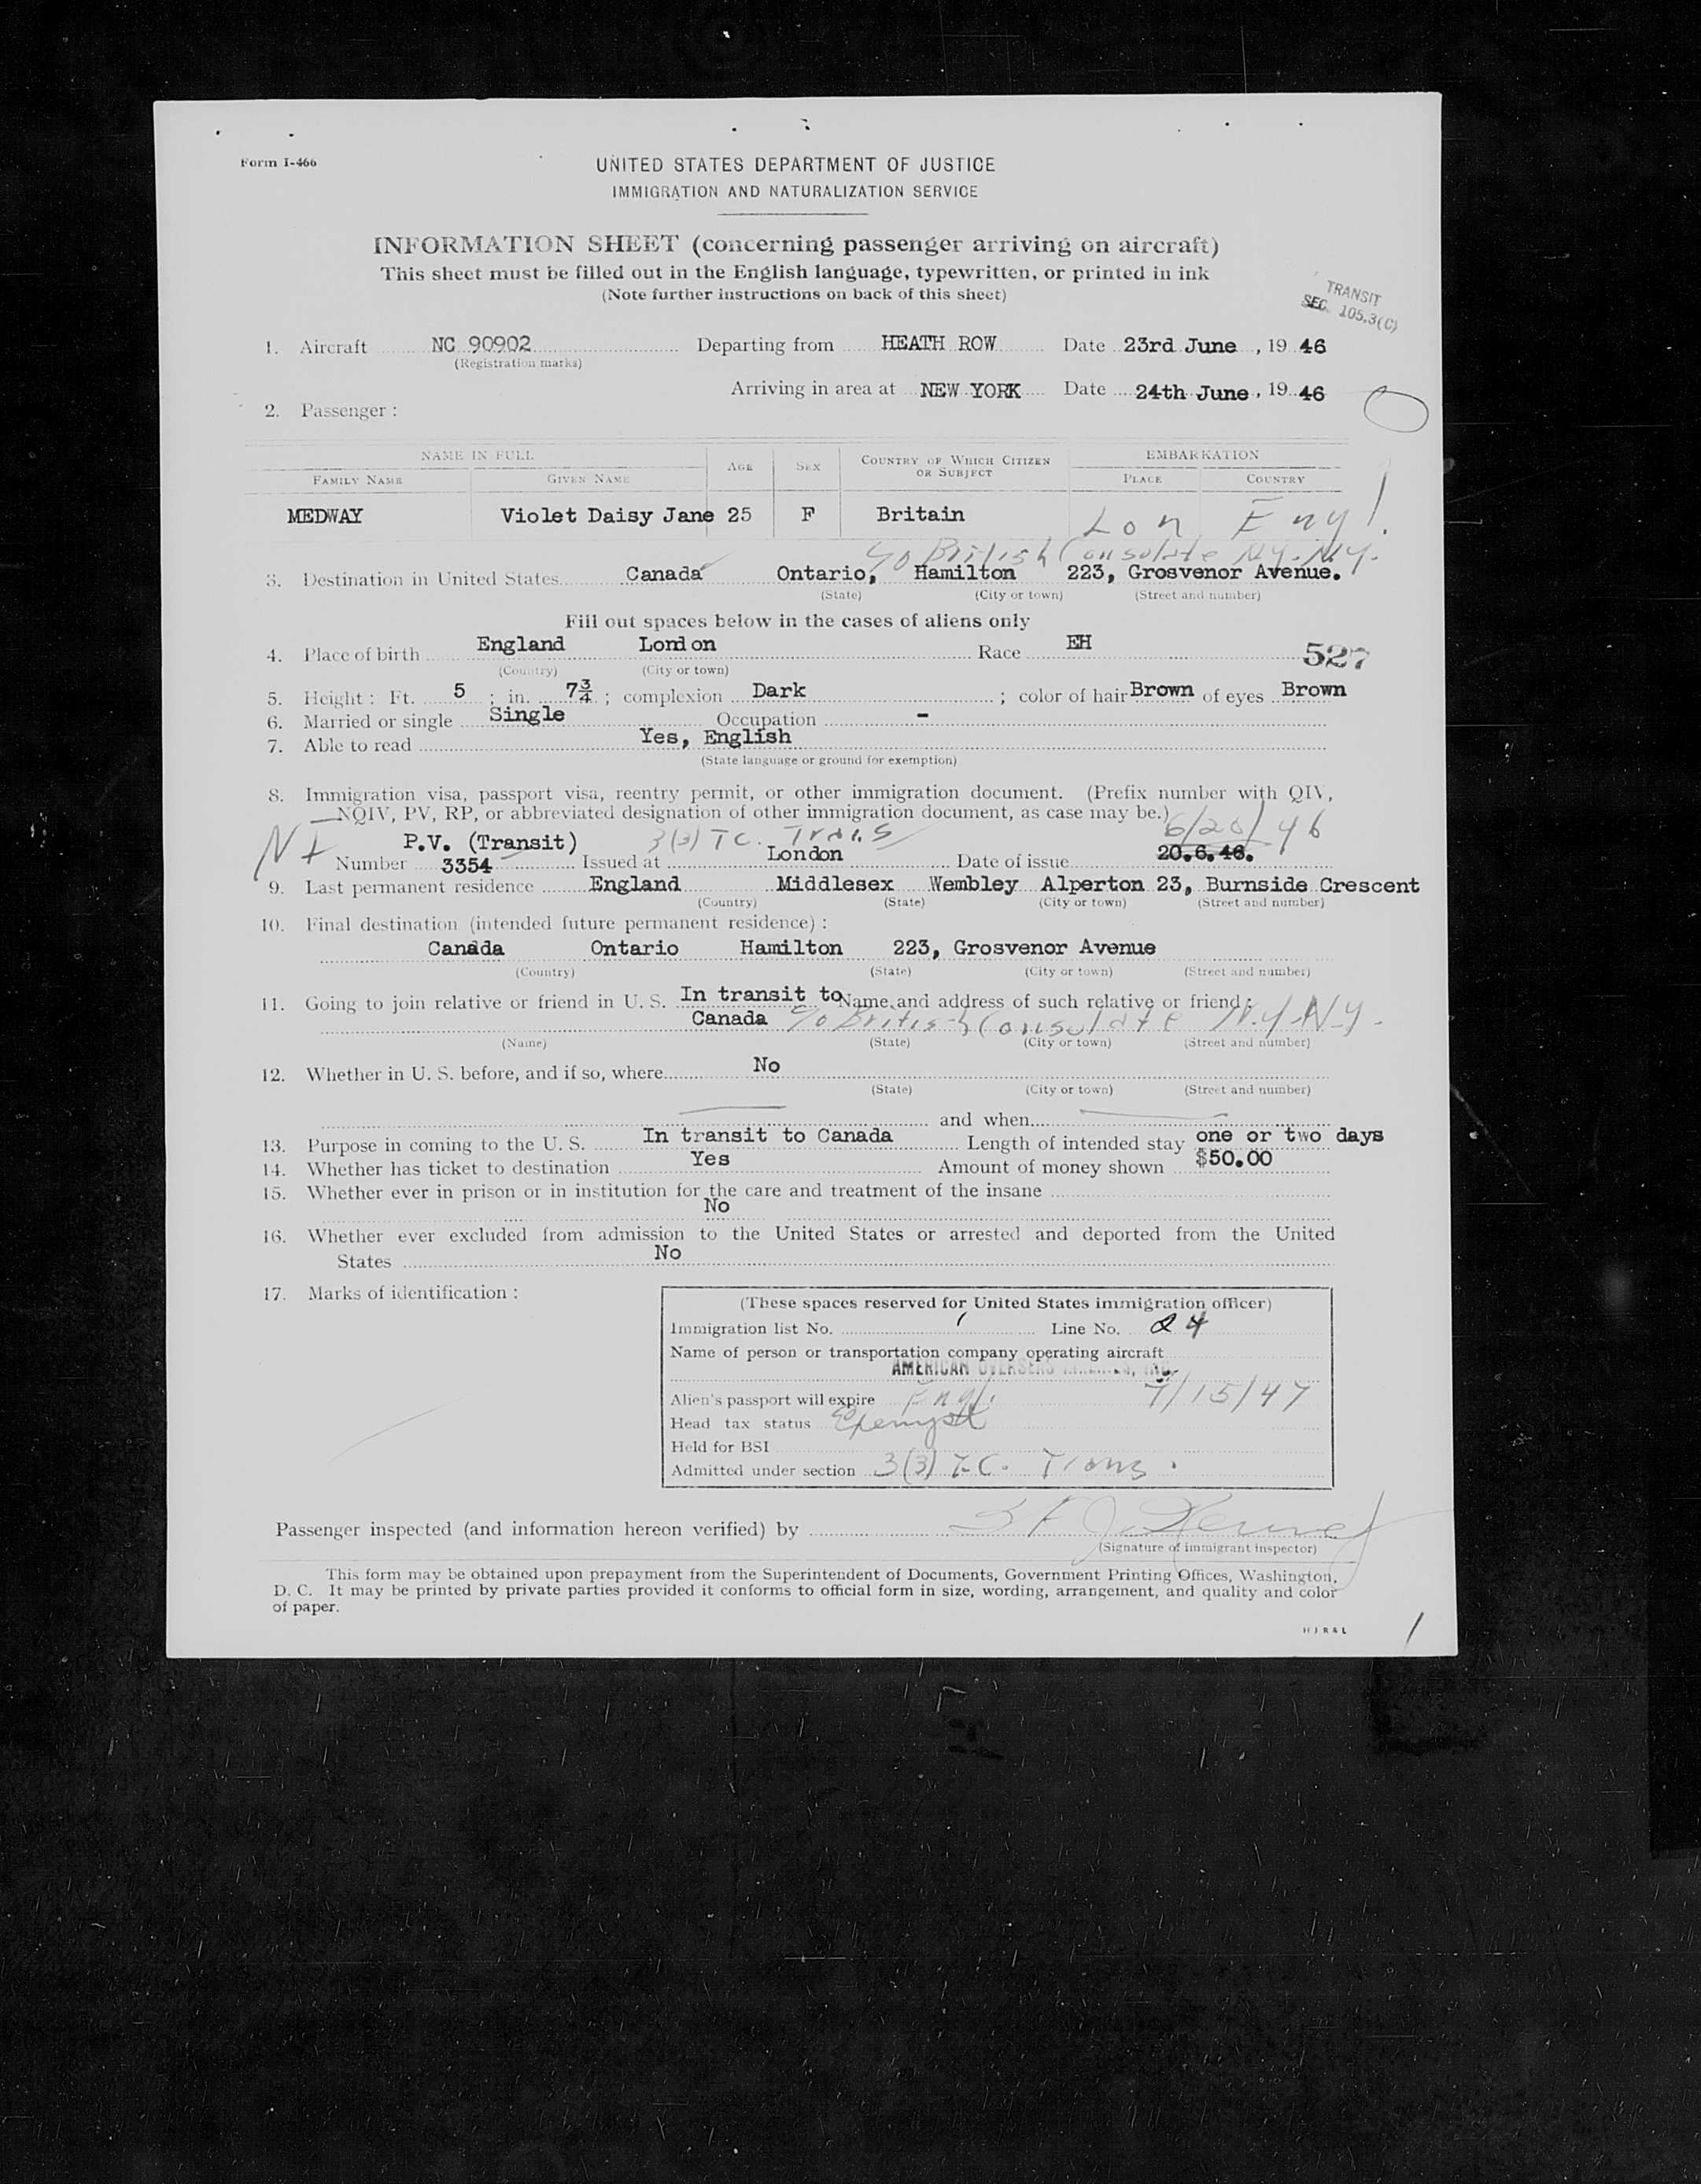 Form I-466
UNITED STATES DEPARTMENT OF JUSTICE
IMMIGRATION AND NATURALIZATION SERVICE
INFORMATION SHEET (concerning passenger arriving on aircraft)
This sheet must be filled out in the English language, typewritten, or printed in ink
(Note further instructions on back of this sheet)
TRANSIT
SEC. 105.3(C)
1. Aircraft NC 90902 Departing from HEATH ROW Date 23rd June, 19 46
(Registration marks)
Arriving in area at NEW YORK Date 24th June, 19 46
2. Passenger:
NAME IN FULL AGE SEX COUNTRY OF WHICH CITIZEN OR SUBJECT EMBARKATION
FAMILY NAME GIVEN NAME PLACE COUNTRY
MEDWAY Violet Daisy Jane 25 F Britain Lon Eng.
c/o British Consulate N.Y. N.Y.
3. Destination in United States Canada Ontario, Hamilton 223, Grosvenor Avenue.
(State) (City or town) (Street and number)
Fill out spaces below in the cases of aliens only
4. Place of birth England London Race EH 527
(Country) (City or town)
5. Height: Ft. 5; in. 7¾; complexion Dark; color of hair Brown of eyes Brown
6. Married or single Single Occupation -
7. Able to read Yes, English
(State language or ground for exemption)
8. Immigration visa, passport visa, reentry permit, or other immigration document. (Prefix number with QIV,
NQIV, PV, RP, or abbreviated designation of other immigration document, as case may be.)
P.V. (Transit) 3(3) T.C. Trans 6/20/46
Number 3354 Issued at London Date of issue 20.6.46.
9. Last permanent residence England Middlesex Wembley Alperton 23, Burnside Crescent
(Country) (State) (City or town) (Street and number)
10. Final destination (intended future permanent residence):
Canada Ontario Hamilton 223, Grosvenor Avenue
(Country) (State) (City or town) (Street and number)
11. Going to join relative or friend in U. S. In transit to Name and address of such relative or friend:
Canada c/o British Consulate N.Y. N.Y.
(Name) (State) (City or town) (Street and number)
12. Whether in U. S. before, and if so, where No
(State) (City or town) (Street and number)
and when
13. Purpose in coming to the U. S. In transit to Canada Length of intended stay one or two days
14. Whether has ticket to destination Yes Amount of money shown $50.00
15. Whether ever in prison or in institution for the care and treatment of the insane
No
16. Whether ever excluded from admission to the United States or arrested and deported from the United
States No
17. Marks of identification:
(These spaces reserved for United States immigration officer)
Immigration list No. 1 Line No. 24
Name of person or transportation company operating aircraft
AMERICAN OVERSEAS AIRLINES, INC.
Alien's passport will expire Eng. 7/15/47
Head tax status Exempt
Held for BSI
Admitted under section 3(3) T.C. Trans.
Passenger inspected (and information hereon verified) by
(Signature of immigrant inspector)
This form may be obtained upon prepayment from the Superintendent of Documents, Government Printing Offices, Washington,
D. C. It may be printed by private parties provided it conforms to official form in size, wording, arrangement, and quality and color
of paper.
H J R & L